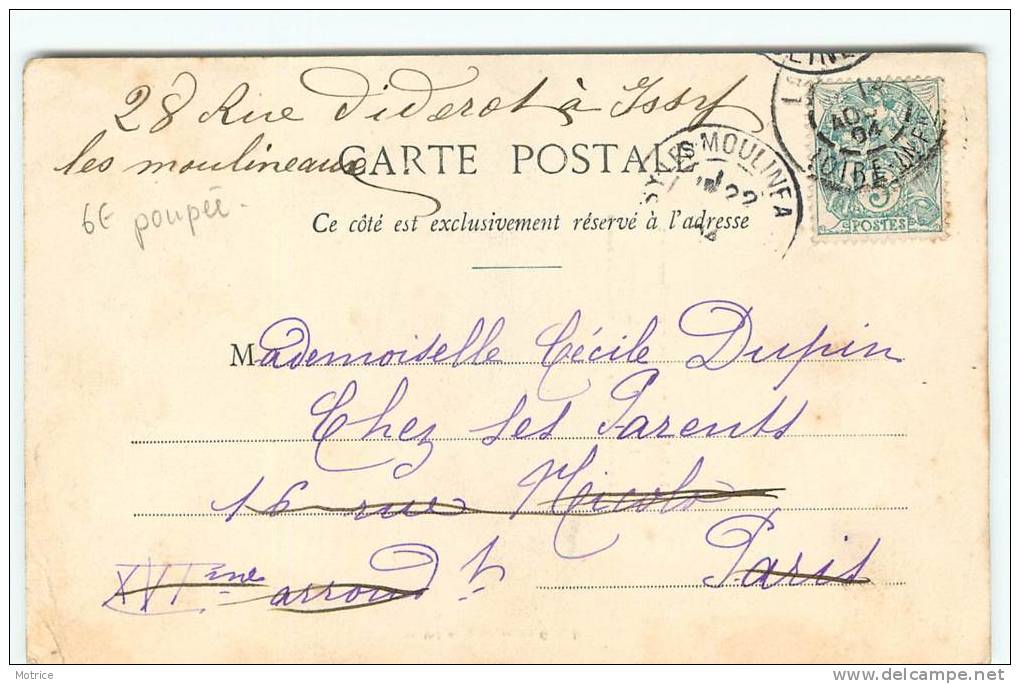 28 Rue Diderot à Issy
les moulineaux
CARTE POSTALE
6€ poupée
Ce côté est exclusivement réservé à l'adresse
MOULINEA
22
AOU
04
LOIRE INFRE
5
POSTES
Mademoiselle Cécile Dupin
Chez Ses Parents
16 rue Nicolo
XVIème arrondt Paris
Motrice
www.delcampe.net